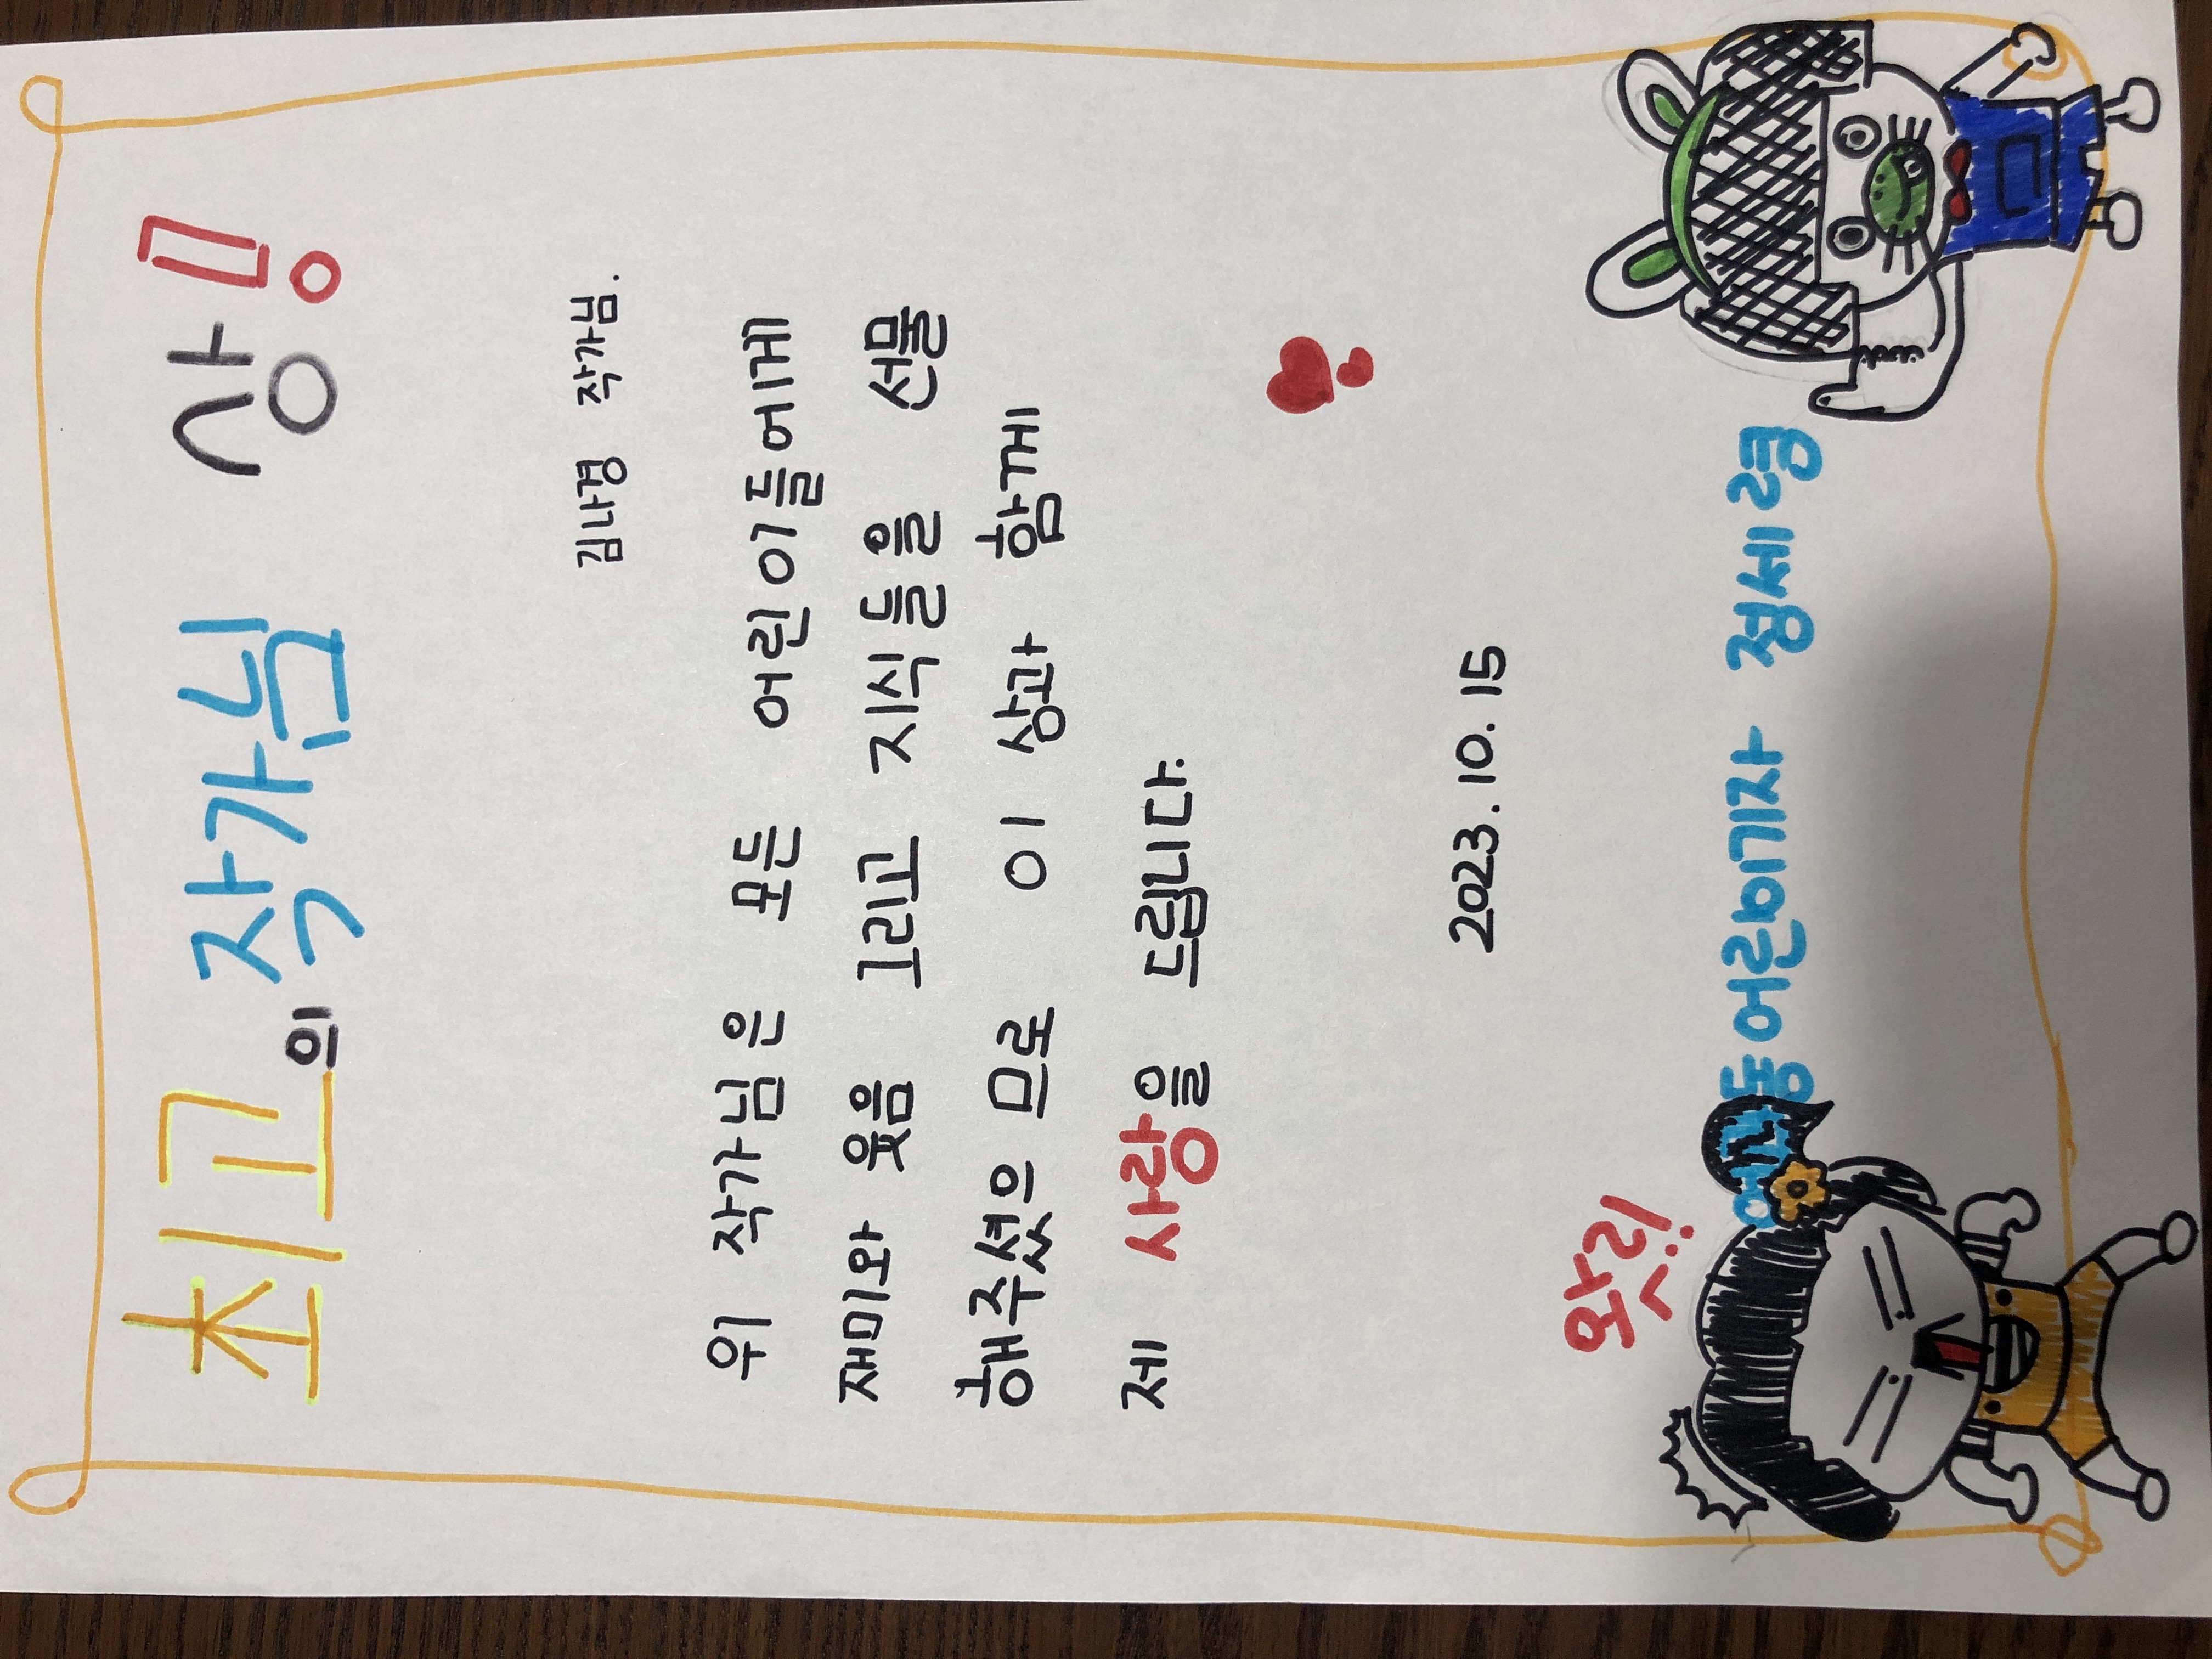 최고의 작가님 상!
김나경 작가님.
위 작가님은 모든 어린이들에게
재미와 웃음 그리고 지식들을 선물
해주셨으므로 이 상과 함께
제 사랑을 드립니다.
2023. 10. 15
어린이기자 정세